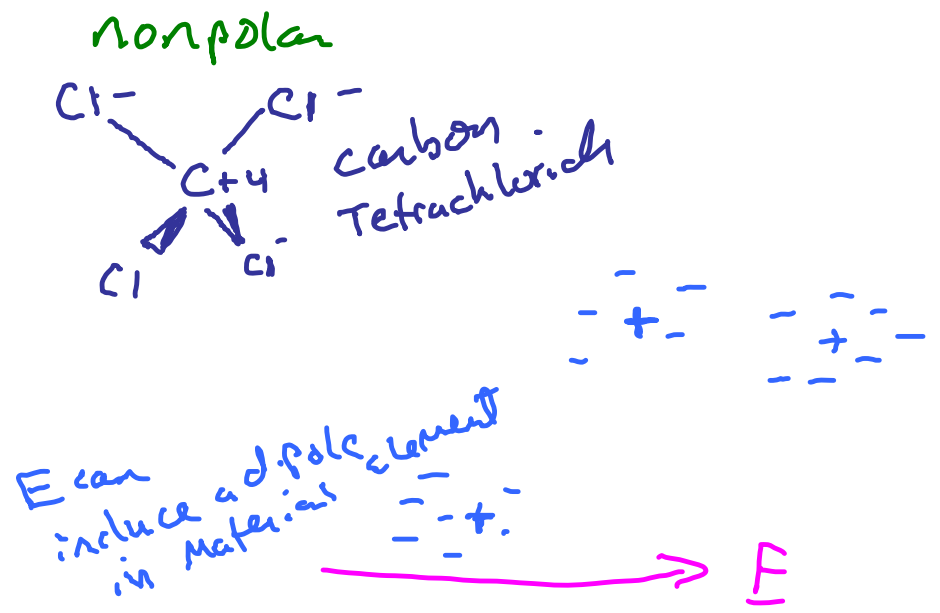 nonpolar
Cl - Cl -
C+4
Cl Cl -
carbon
Tetrachloride
- - - + - -
- - - + - - - -
E can
induce a dipole moment
in material
- - - + - - - -
E